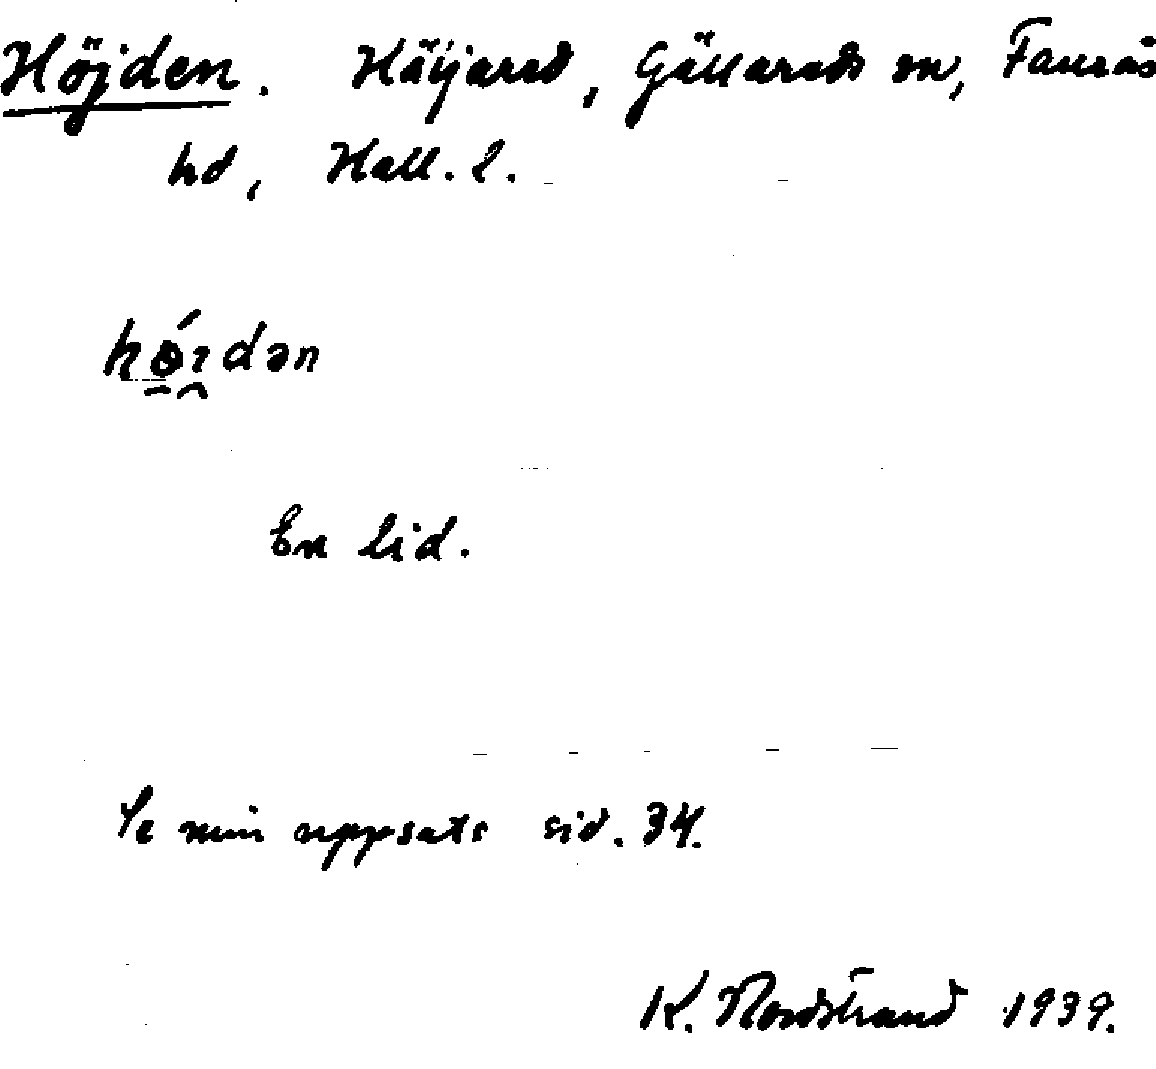 Höjden. Häljared, Gällareds sn, Faurås
hd, Hall. l.
hǿɪdən
En lid.
Se min uppsats sid. 34.
K. Nordstrand 1939.